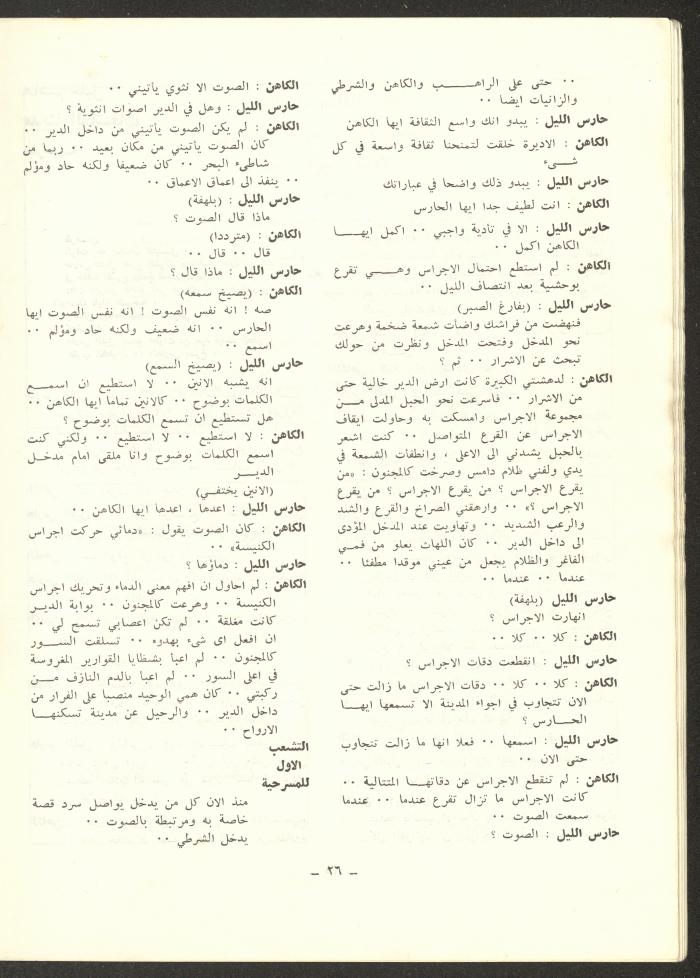 ·· حتى على الراهب والكاهن والشرطي
والزانيات ايضا ··
حارس الليل : يبدو انك واسع الثقافة ايها الكاهن
الكاهن : الاديرة خلقت لتمنحنا ثقافة واسعة في كل
شيء
حارس الليل : يبدو ذلك واضحا في عباراتك
الكاهن : انت لطيف جدا ايها الحارس
حارس الليل : الا في تادية واجبي ·· اكمل ايها
الكاهن اكمل ··
الكاهن : لم استطع احتمال الاجراس وهي تقرع
بوحشية بعد انتصاف الليل ··
حارس الليل : (بفارغ الصبر)
فنهضت من فراشك واضأت شمعة ضخمة وهرعت
نحو المدخل وفتحت المدخل ونظرت من حولك
تبحث عن الاشرار ·· ثم ؟
الكاهن : لدهشتي الكبيرة كانت ارض الدير خالية حتى
من الاشرار ·· فاسرعت نحو الحبل المدلى من
مجموعة الاجراس وامسكت به وحاولت ايقاف
الاجراس عن القرع المتواصل ·· كنت اشعر
بالحبل يشدني الى الاعلى ، وانطفات الشمعة في
يدي ولفني ظلام دامس وصرخت كالمجنون : «من
يقرع الاجراس ؟ من يقرع الاجراس ؟ من يقرع
الاجراس ؟» ·· وارهقني الصراخ والقرع والشد
والرعب الشديد ·· وتهاويت عند المدخل المؤدى
الى داخل الدير ·· كان اللهاث يعلو من فمي
الفاغر والظلام يجعل من عيني موقدا مطفئا ··
عندما ·· عندما ··
حارس الليل (بلهفة)
انهارت الاجراس ؟
الكاهن : كلا ·· كلا ··
حارس الليل : انقطعت دقات الاجراس ؟
الكاهن : كلا ·· كلا ·· دقات الاجراس ما زالت حتى
الان تتجاوب في اجواء المدينة الا تسمعها ايها
الحارس ؟
حارس الليل : اسمعها ·· فعلا انها ما زالت تتجاوب
حتى الان ··
الكاهن : لم تنقطع الاجراس عن دقاتها المتتالية ··
كانت الاجراس ما تزال تقرع عندما ·· عندما
سمعت الصوت ··
حارس الليل : الصوت ؟
الكاهن : الصوت الا نثوي ياتيني ··
حارس الليل : وهل في الدير اصوات انثوية ؟
الكاهن : لم يكن الصوت ياتيني من داخل الدير ··
كان الصوت ياتيني من مكان بعيد ·· ربما من
شاطىء البحر ·· كان ضعيفا ولكنه حاد ومؤلم
·· ينفذ الى اعماق الاعماق ··
حارس الليل : (بلهفة)
ماذا قال الصوت ؟
الكاهن : (مترددا)
قال ·· قال ··
حارس الليل : ماذا قال ؟
الكاهن : (يصيخ سمعه)
صه ! انه نفس الصوت ! انه نفس الصوت ايها
الحارس ·· انه ضعيف ولكنه حاد ومؤلم ··
اسمع ··
حارس الليل : (يصيخ السمع)
انه يشبه الانين ·· لا استطيع ان اسمع
الكلمات بوضوح ·· كالانين تماما ايها الكاهن ··
هل تستطيع ان تسمع الكلمات بوضوح ؟
الكاهن : لا استطيع ·· لا استطيع ·· ولكني كنت
اسمع الكلمات بوضوح وانا ملقى امام مدخل
الدير
(الانين يختفي)
حارس الليل : اعدها ، اعدها ايها الكاهن ··
الكاهن : كان الصوت يقول : «دمائي حركت اجراس
الكنيسة» ··
حارس الليل : دماؤها ؟
الكاهن : لم احاول ان افهم معنى الدماء وتحريك اجراس
الكنيسة ·· وهرعت كالمجنون ·· بوابة الدير
كانت مغلقة ·· لم تكن اعصابي تسمح لي ··
ان افعل اى شيء بهدوء ·· تسلقت السور
كالمجنون ·· لم اعبا بشظايا القوارير المغروسة
في اعلى السور ·· لم اعبا بالدم النازف من
ركبتي ·· كان همي الوحيد منصبا على الفرار من
داخل الدير ·· والرحيل عن مدينة تسكنها
الارواح ··
التشعب
الاول
للمسرحية
منذ الان كل من يدخل يواصل سرد قصة
خاصة به ومرتبطة بالصوت ··
يدخل الشرطي ··
– ٢٦ –